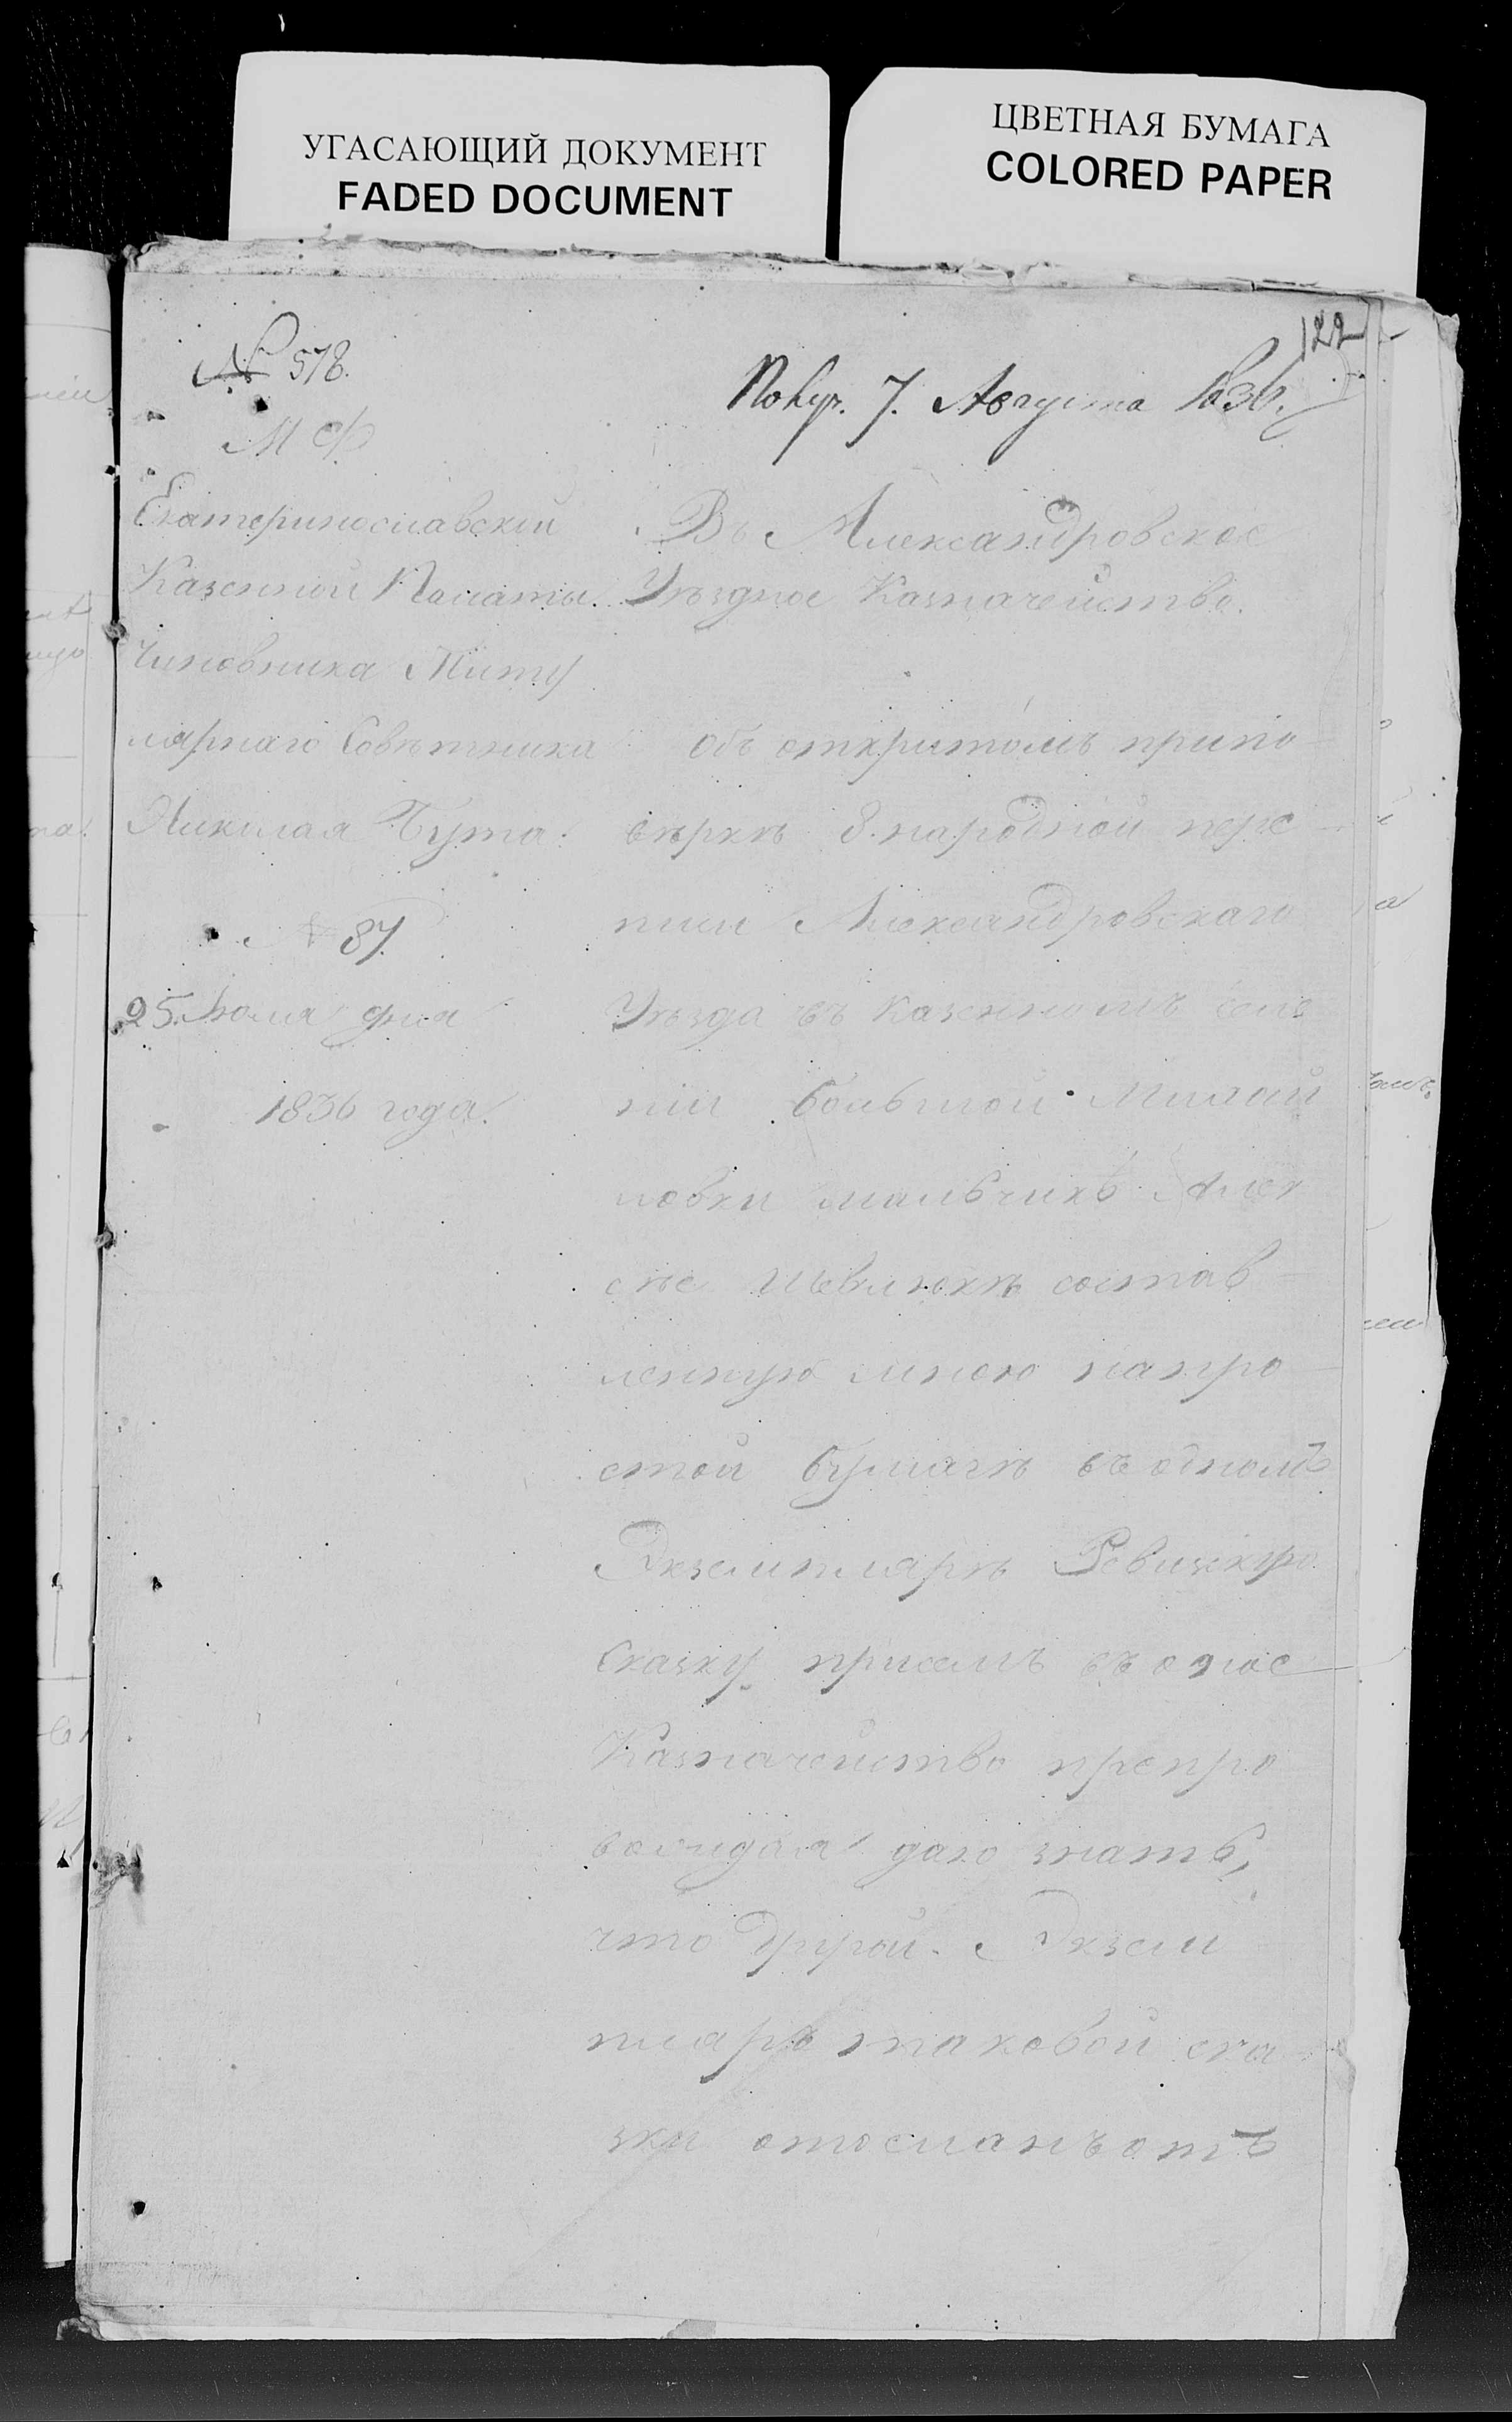 УГАСАЮЩИЙ ДОКУМЕНТ
FADED DOCUMENT
ЦВЕТНАЯ БУМАГА
COLORED PAPER
122
№ 578.
Получ. 7. Августа 1836.
М Ф
Екатеринославскій
Казенной Палаты.
Чиновника Титу
лярнаго Совѣтника
Николая Бута.
№ 87
25. Іюля дня
1836 года.
Въ Александровское
Уѣздное Казначейство.
Объ открытомъ при по
вѣркѣ 8. народной пере
писи Александровскаго
Уѣзда въ казенномъ селе
ніи Большой Михай
ловки мальчикѣ Алек
сѣе Шевлюкѣ состав
ленную мною на про
стой бумагѣ въ одномъ
Экземплярѣ Ревизскую
Сказку при семъ въ оное
Казначейство препро
вождая даю знать,
что другой Экзем
пляръ таковой ска
зки отосланъ отъ